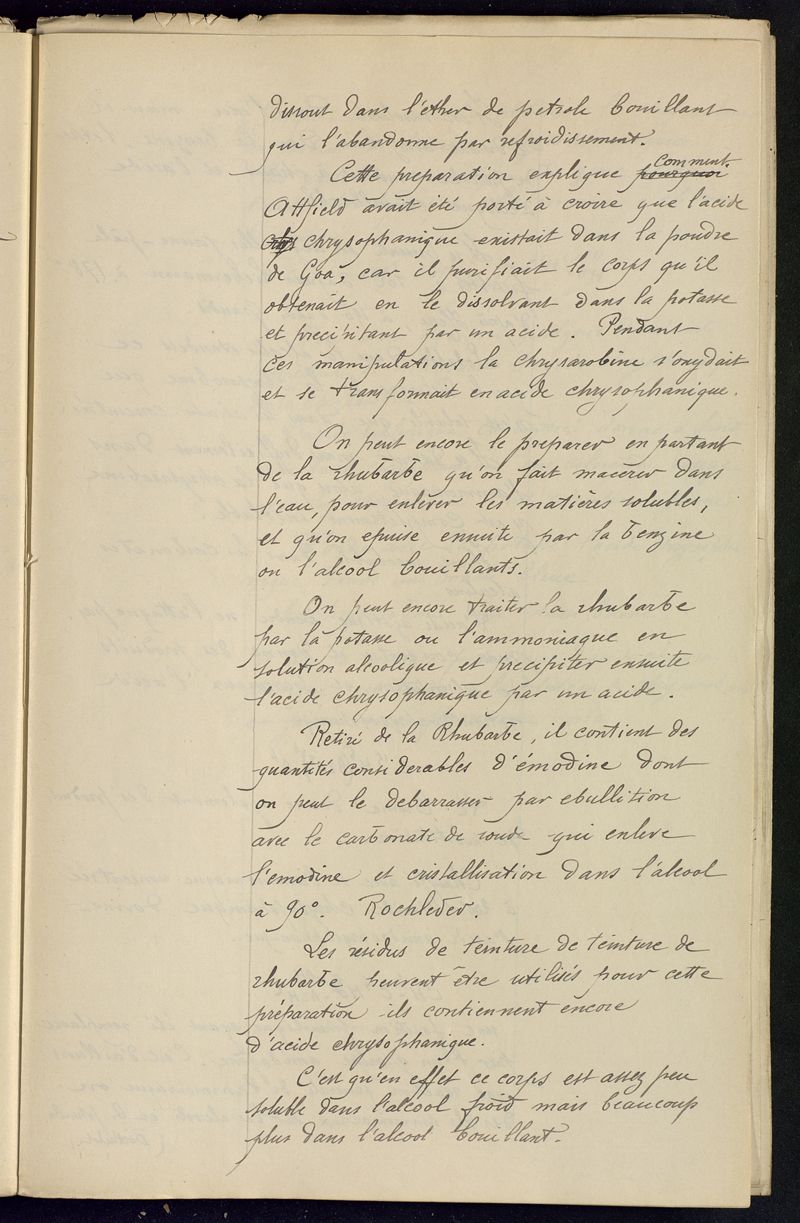 dissout dans l'ether de petrole bouillant
qui l'abandonne par refroidissement.
Cette preparation explique pourquoi comment
Attfield avait été porté à croire que l'acide
chrysophanique existait dans la poudre
de Goa, car il purifiait le corps qu'il
obtenait en le dissolvant dans la potasse
et precipitant par un acide. Pendant
ces manipulations la chrysarobine s'oxydait
et se transformait en acide chrysophanique.
On peut encore le preparer en partant
de la rhubarbe qu'on fait macérer dans
l'eau, pour enlever les matières solubles,
et qu'on epuise ensuite par la benzine
ou l'alcool bouillants.
On peut encore traiter la rhubarbe
par la potasse ou l'ammoniaque en
solution alcoolique et precipiter ensuite
l'acide chrysophanique par un acide.
Retiré de la Rhubarbe, il contient des
quantités considerables d'émodine dont
on peut le debarrasser par ebullition
avec le carbonate de soude qui enleve
l'emodine et cristallisation dans l'alcool
à 90°. Rochleder.
Les résidus de teinture de teinture de
rhubarbe peuvent être utilisés pour cette
préparation ils contiennent encore
d'acide chrysophanique.
C'est qu'en effet ce corps est assez peu
soluble dans l'alcool froid mais beaucoup
plus dans l'alcool bouillant.